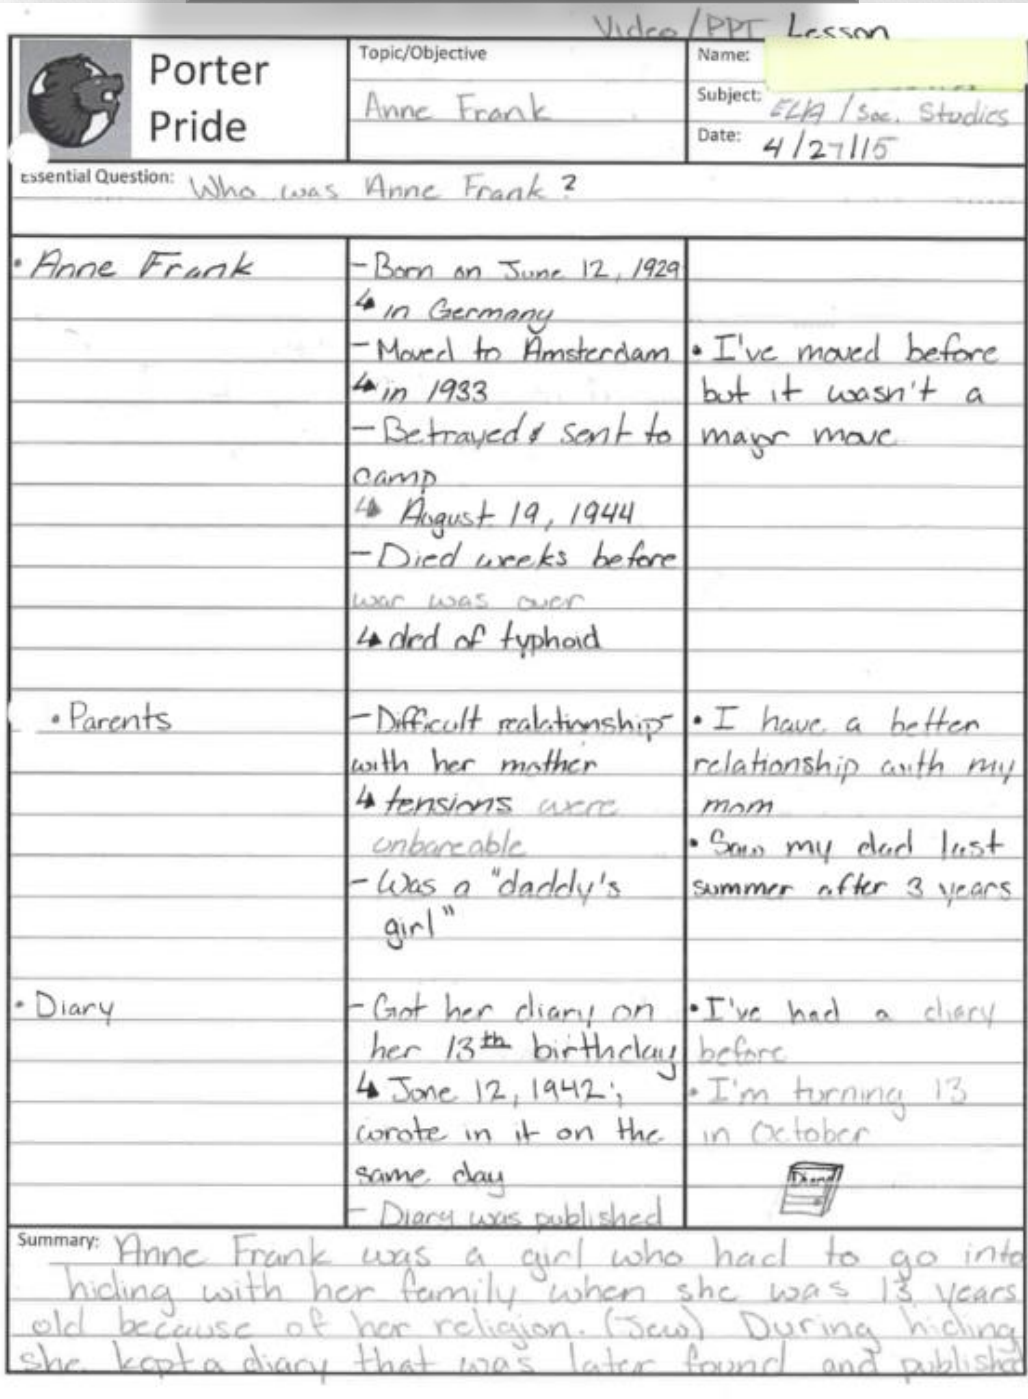 Video/PPT Lesson
Porter
Pride
Topic/Objective
Anne Frank
Name:
Subject: ELA / Soc. Studies
Date: 4/27/15
Essential Question: Who was Anne Frank?
• Anne Frank
- Born on June 12, 1929
↳ in Germany
- Moved to Amsterdam
↳ in 1933
- Betrayed & sent to
camp
↳ August 19, 1944
- Died weeks before
war was over
↳ died of typhoid
• I've moved before
but it wasn't a
major move
• Parents
- Difficult realationship
with her mother
↳ tensions were
unbareable
- Was a "daddy's
girl"
• I have a better
relationship with my
mom
• Saw my dad last
summer after 3 years
• Diary
- Got her diary on
her 13th birthday
↳ June 12, 1942;
wrote in it on the
same day
- Diary was published
• I've had a diary
before
• I'm turning 13
in October
Diary
Summary: Anne Frank was a girl who had to go into
hiding with her family when she was 13 years
old because of her religion. (Jew) During hiding
she kept a diary that was later found and published